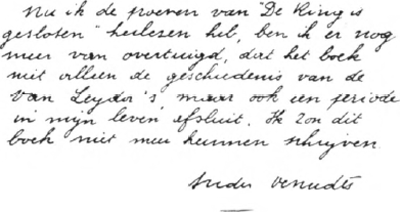 Nu ik de proeven van "De Ring is
gesloten" herlezen heb, ben ik er nog
meer van overtuigd, dat het boek
niet alleen de geschiedenis van de
Van Leyden's, maar ook een periode
in mijn leven afsluit. Ik zou dit
boek niet meer kunnen schrijven.